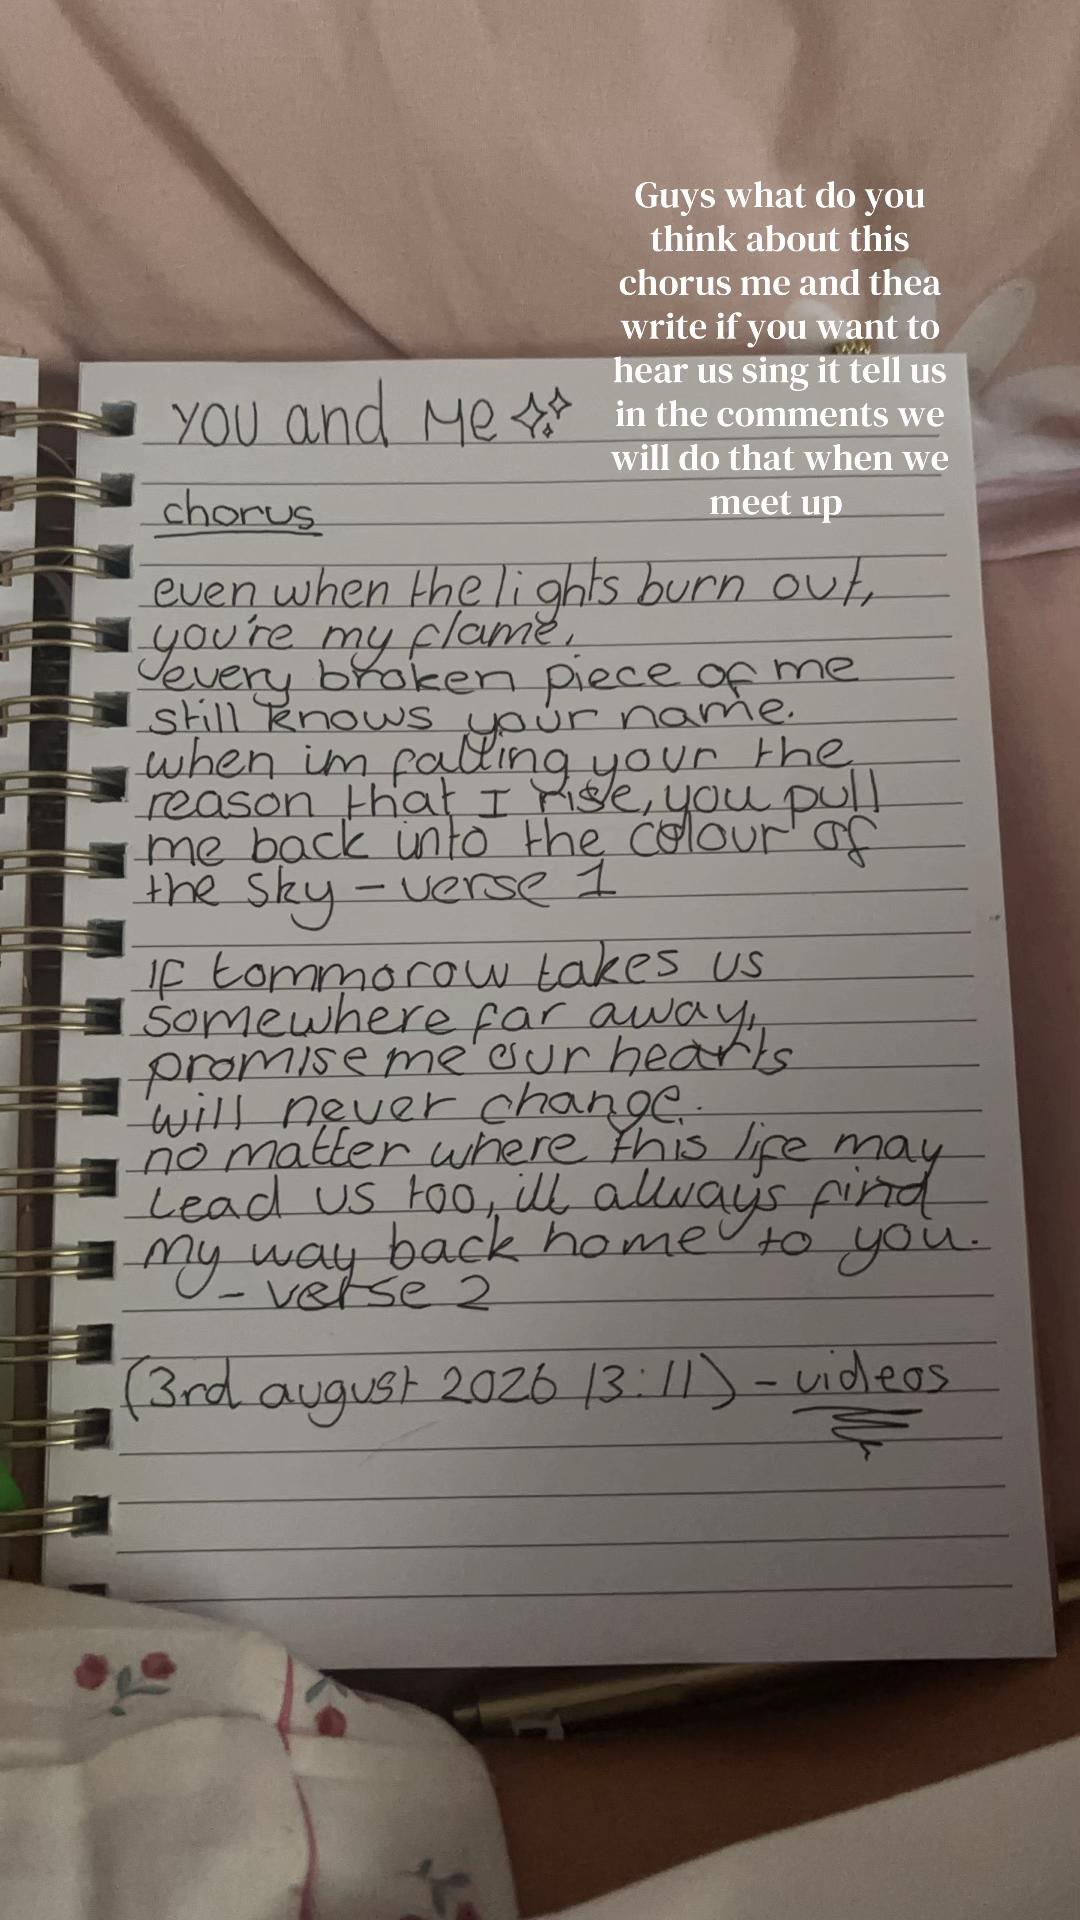 Guys what do you
think about this
chorus me and thea
write if you want to
hear us sing it tell us
in the comments we
will do that when we
meet up
YOU and Me
chorus
even when the lights burn out,
you're my flame,
every broken piece of me
still knows your name.
when im falling your the
reason that I rise, you pull
me back into the colour of
the sky - verse 1
If tommorow takes us
somewhere far away,
promise me our hearts
will never change.
no matter where this life may
lead us too, ill always find
my way back home to you.
- verse 2
(3rd august 2026 13:11) - videos